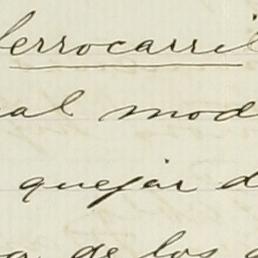 ferrocarril
al mod
quejar d
de los